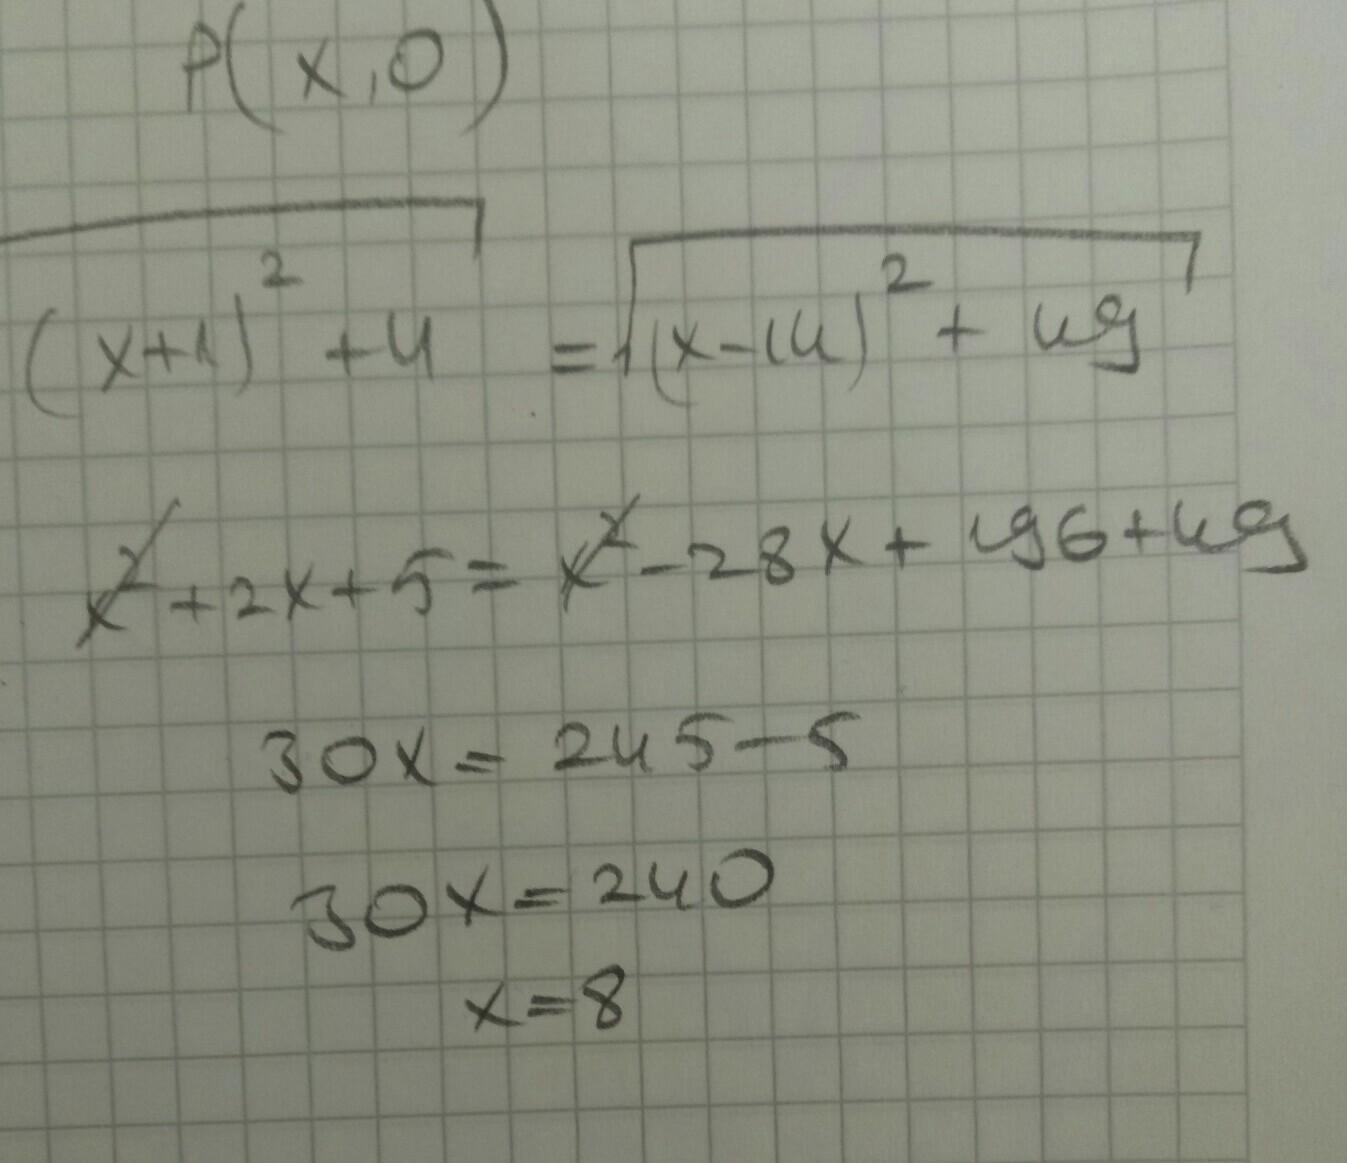 P(x,0)
(x+1)² +4 = √(x-14)² + 49
x² +2x+5 = x² -28x + 196+49
30x = 245-5
30x = 240
x=8